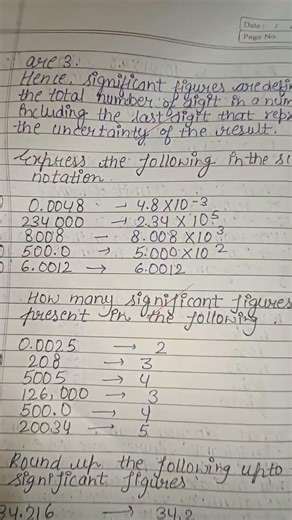 Date :
Page No.
are 3.
Hence, significant figures are defi
the total number of digit in a num
including the last digit that rep
the uncertainty of the result.
Express the following in the sc
notation.
0.0048 → 4.8×10⁻³
234 000 → 2.34 ×10⁵
8008 — 8.008 ×10³
500.0 → 5.000×10²
6.0012 → 6.0012
How many significant figures
present in the following.
0.0025 → 2
208 → 3
5005 → 4
126,000 → 3
500.0 → 4
20034 → 5
Round up the following upto
significant figures
34.216 → 34.2